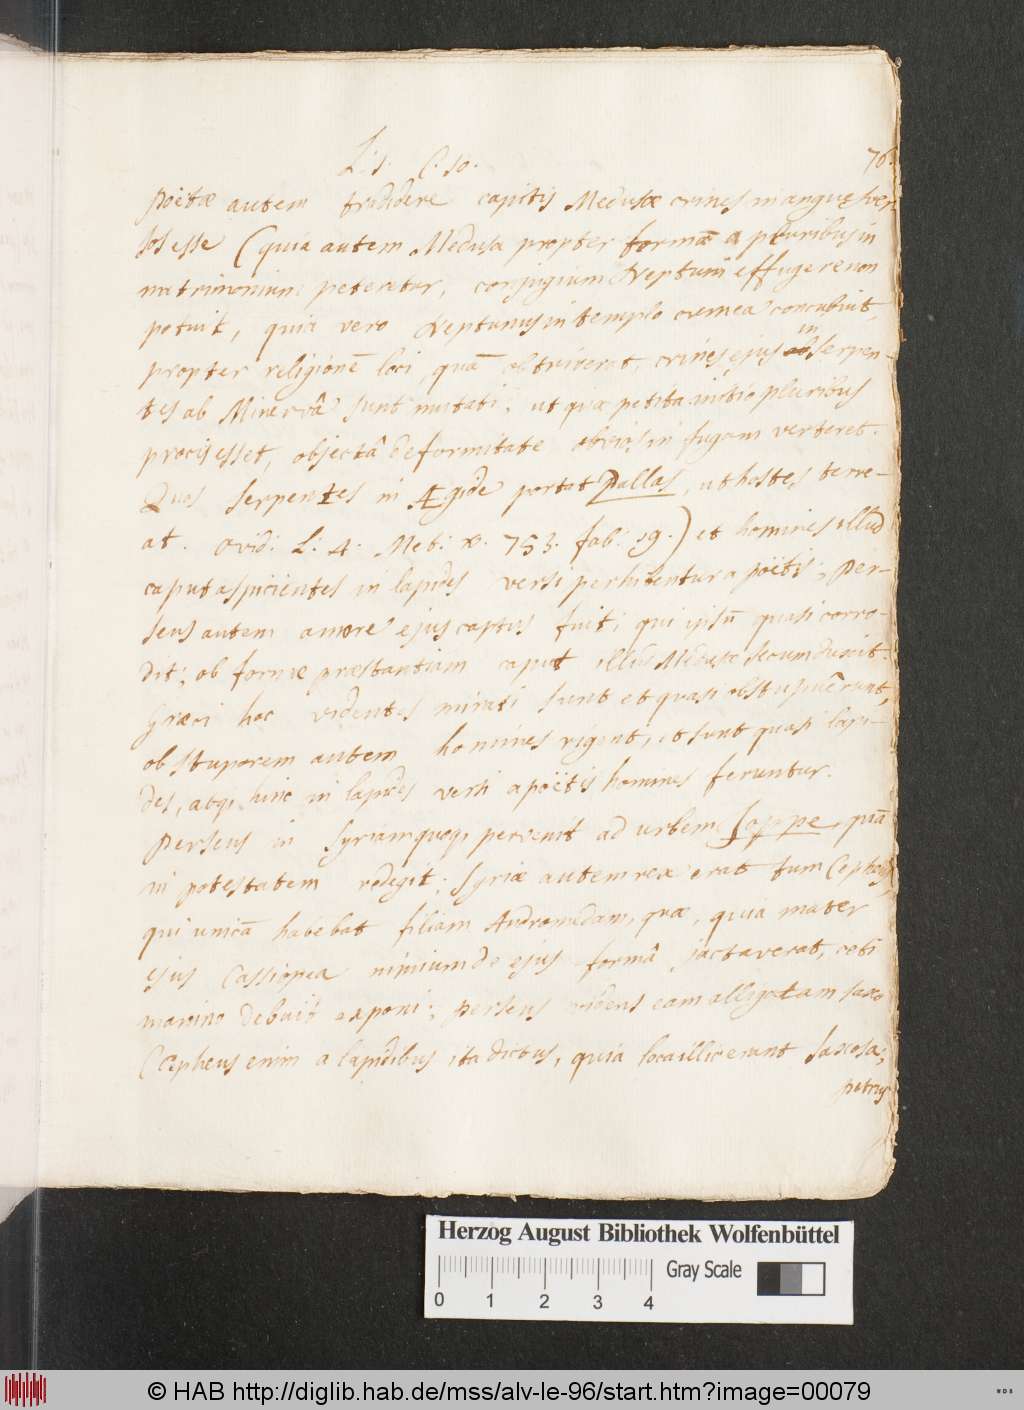 L: 1. C. 10.
76.
Poëtae autem tradidere capitis Medusae crines in angues ver-
sos esse (quia autem Medusa propter formã a pluribus in
matrimonium peteretur, conjugium Neptuni effugere non
potuit, quia vero Neptunus in templo cum ea concubuit,
propter religionẽ loci, quã obtriverat, crines ejus ob in serpen-
tes ab Minervâ sunt mutati, ut quae petita initio pluribus
procis esset, objectâ deformitate obvios in fugam verteret.
Quos serpentes in Ægide portat Pallas, ut hostes terre-
at. Ovid: L: 4. Met: v. 753. fab: 19.) et homines illud
caput aspicientes in lapides versi perhibentur a poëtis; Per-
seus autem amore ejus captus fuit; qui ipsũ quasi corro-
dit; ob formae praestantiam caput illud Medusae secum duxit.
Graeci hoc videntes mirati sunt et quasi obstupuêrunt,
ob stuporem autem homines rigent, et sunt quasi lapi-
des, atqs hinc in lapides versi a poëtis homines feruntur.
Perseus in Syriam quoqs pervenit ad urbem Joppe, quã
in potestatem redegit; Syriae autem rex erat tum Cepheus,
qui unicã habebat filiam Andromedam, quae, quia mater
ejus Cassiopea nimium de ejus formâ jactaverat, ceti
marino debuit exponi; Perseus videns eam alligatam saxo
(Cepheus enim a lapidibus ita dictus, quia loca illic erant saxosa,
petrus
Herzog August Bibliothek Wolfenbüttel
Gray Scale
0 1 2 3 4
© HAB http://diglib.hab.de/mss/alv-le-96/start.htm?image=00079